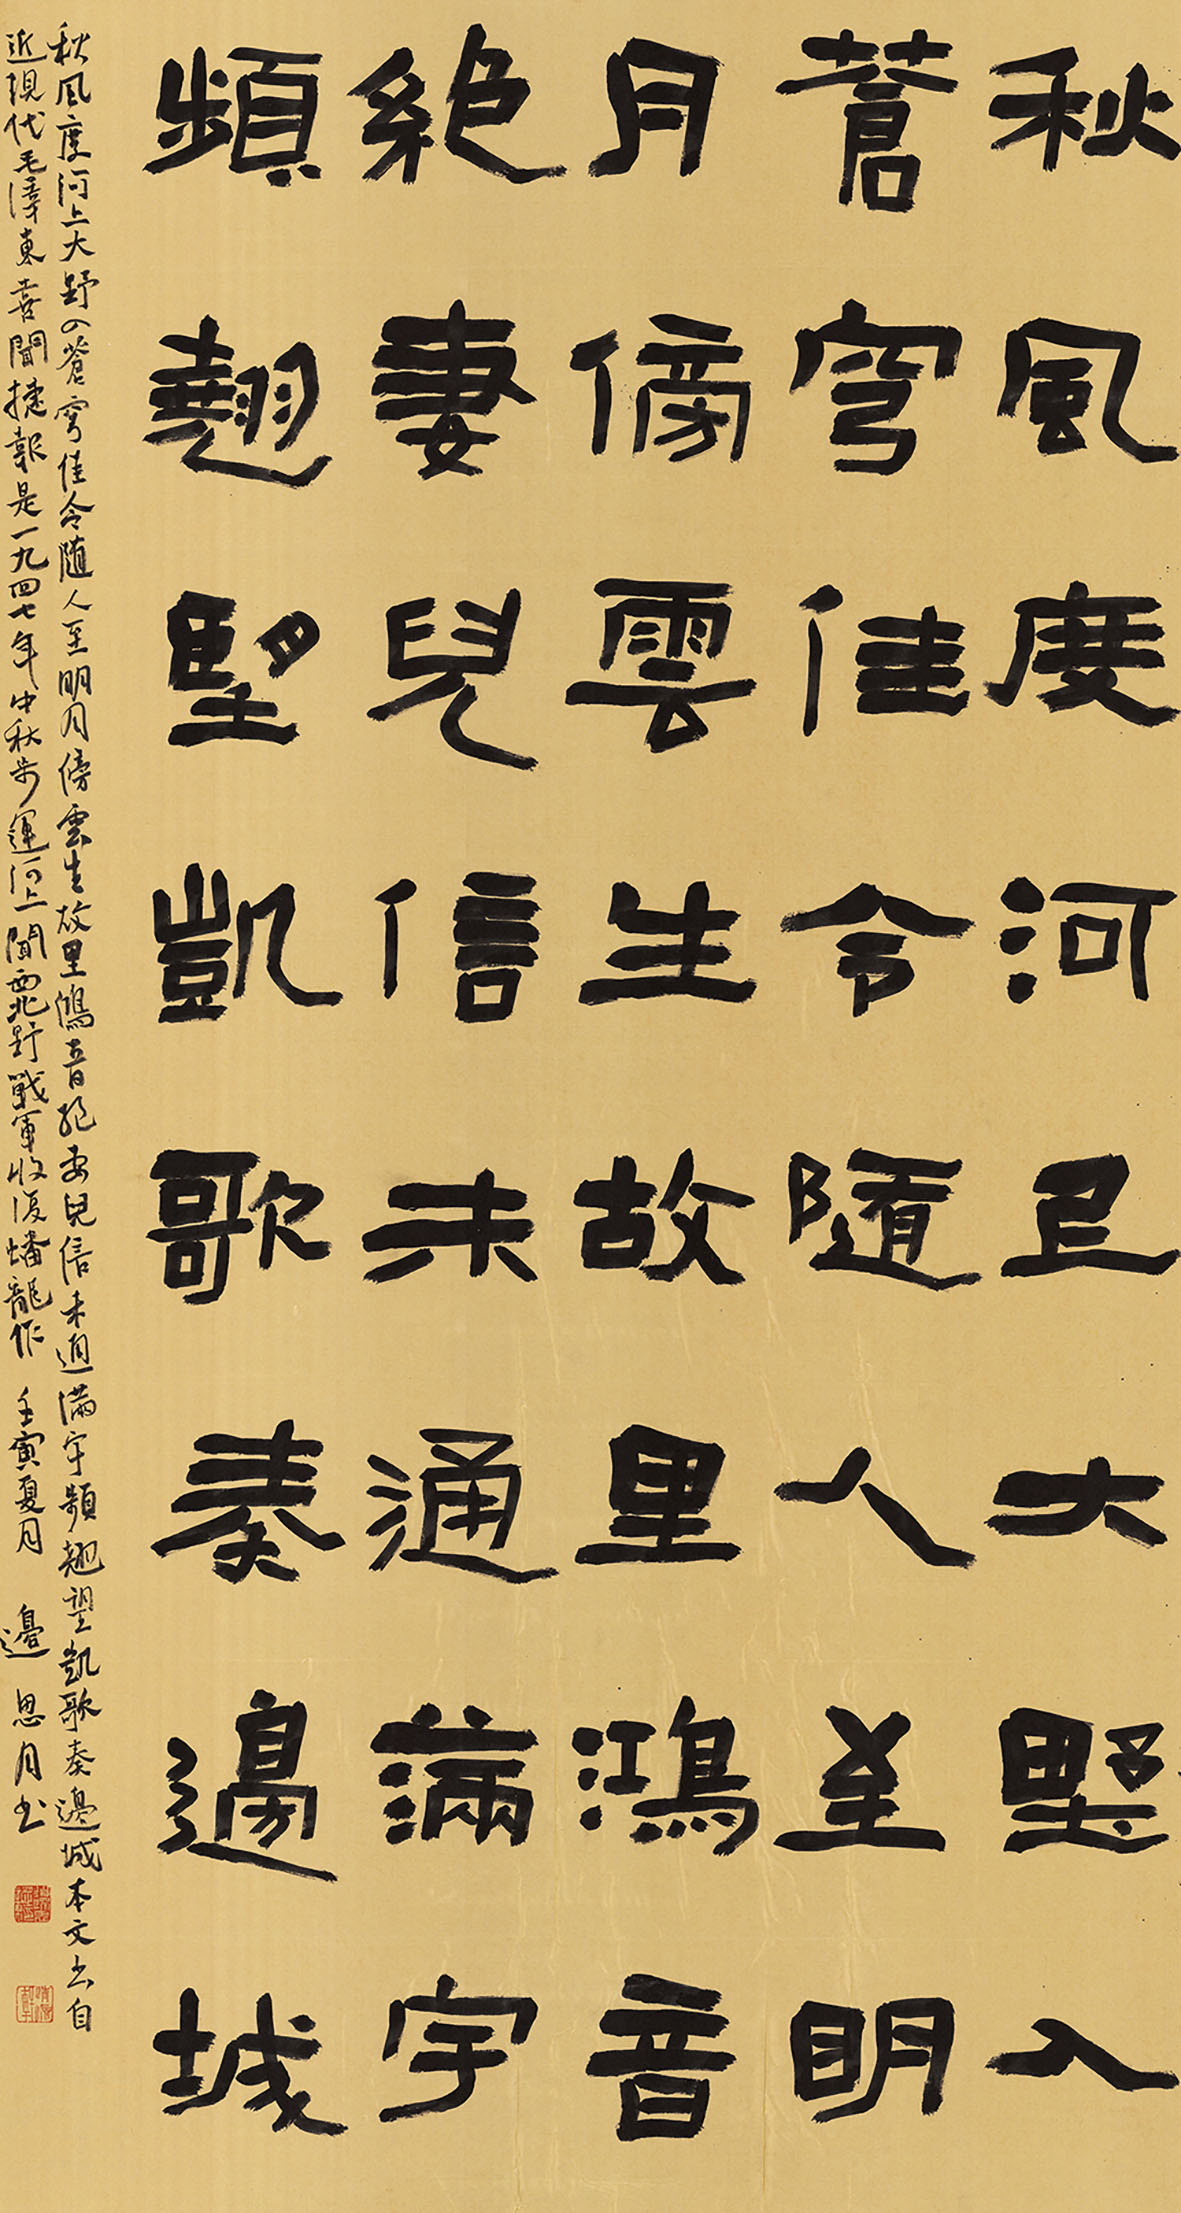 秋風度河上大野入
蒼穹佳令隨人至明
月傍雲生故里鴻音
絕妻兒信未通滿宇
頻翹望凱歌奏邊城
秋风度河上大野入蒼穹佳令随人至明月傍雲生故里鴻音絕妻兒信未通满宇頻翹望凱歌奏邊城本文书自
近現代毛澤東喜聞捷報是一九四七年中秋步運河上聞西北野戰軍收復蟠龍作 壬寅夏月 邊思月书